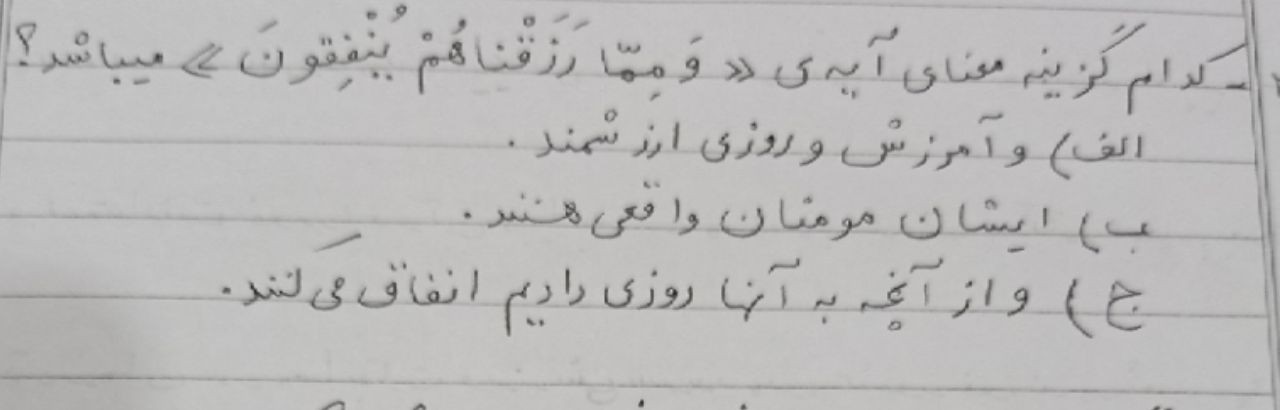 ـ کدام گزینه معنای آیه ی « وَ مِمّا رَزَقْناهُمْ یُنْفِقونَ » میباشد؟
الف) و آمرزش و روزی ارزشمند.
ب) ایشان مومنان واقعی هستند.
ج) و از آنچه به آنها روزی دادیم انفاق می کنند.